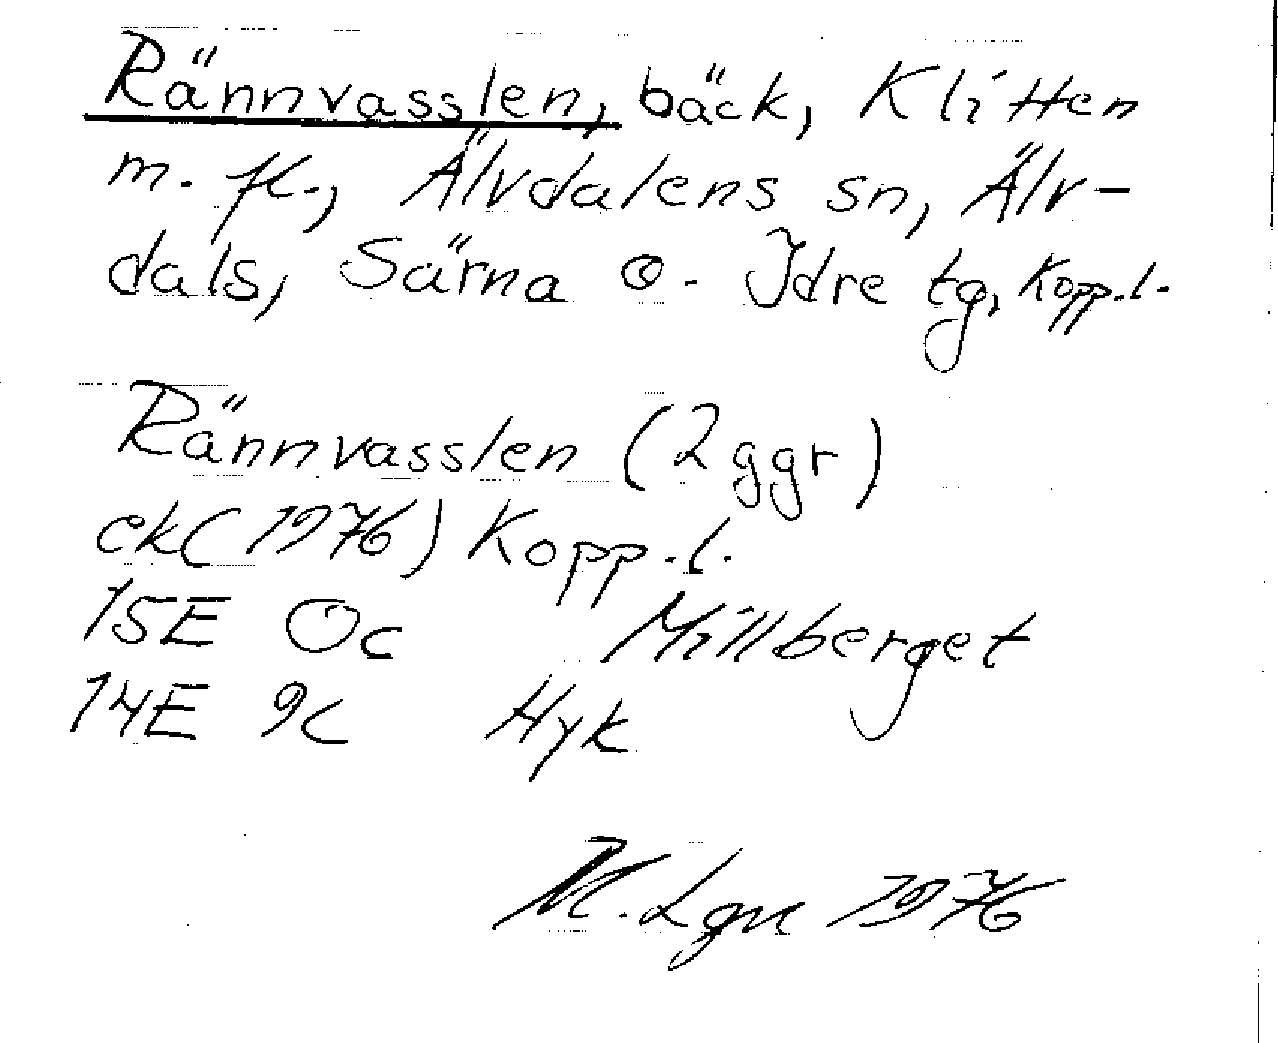 Rännvasslen, bäck, Klitten
m. fl., Älvdalens sn, Älv-
dals, Särna o. Idre tg, Kopp.l.
Rännvasslen (2 ggr)
ek(1976) Kopp.l.
15E 0c Millberget
14E 9c Hyk
1976